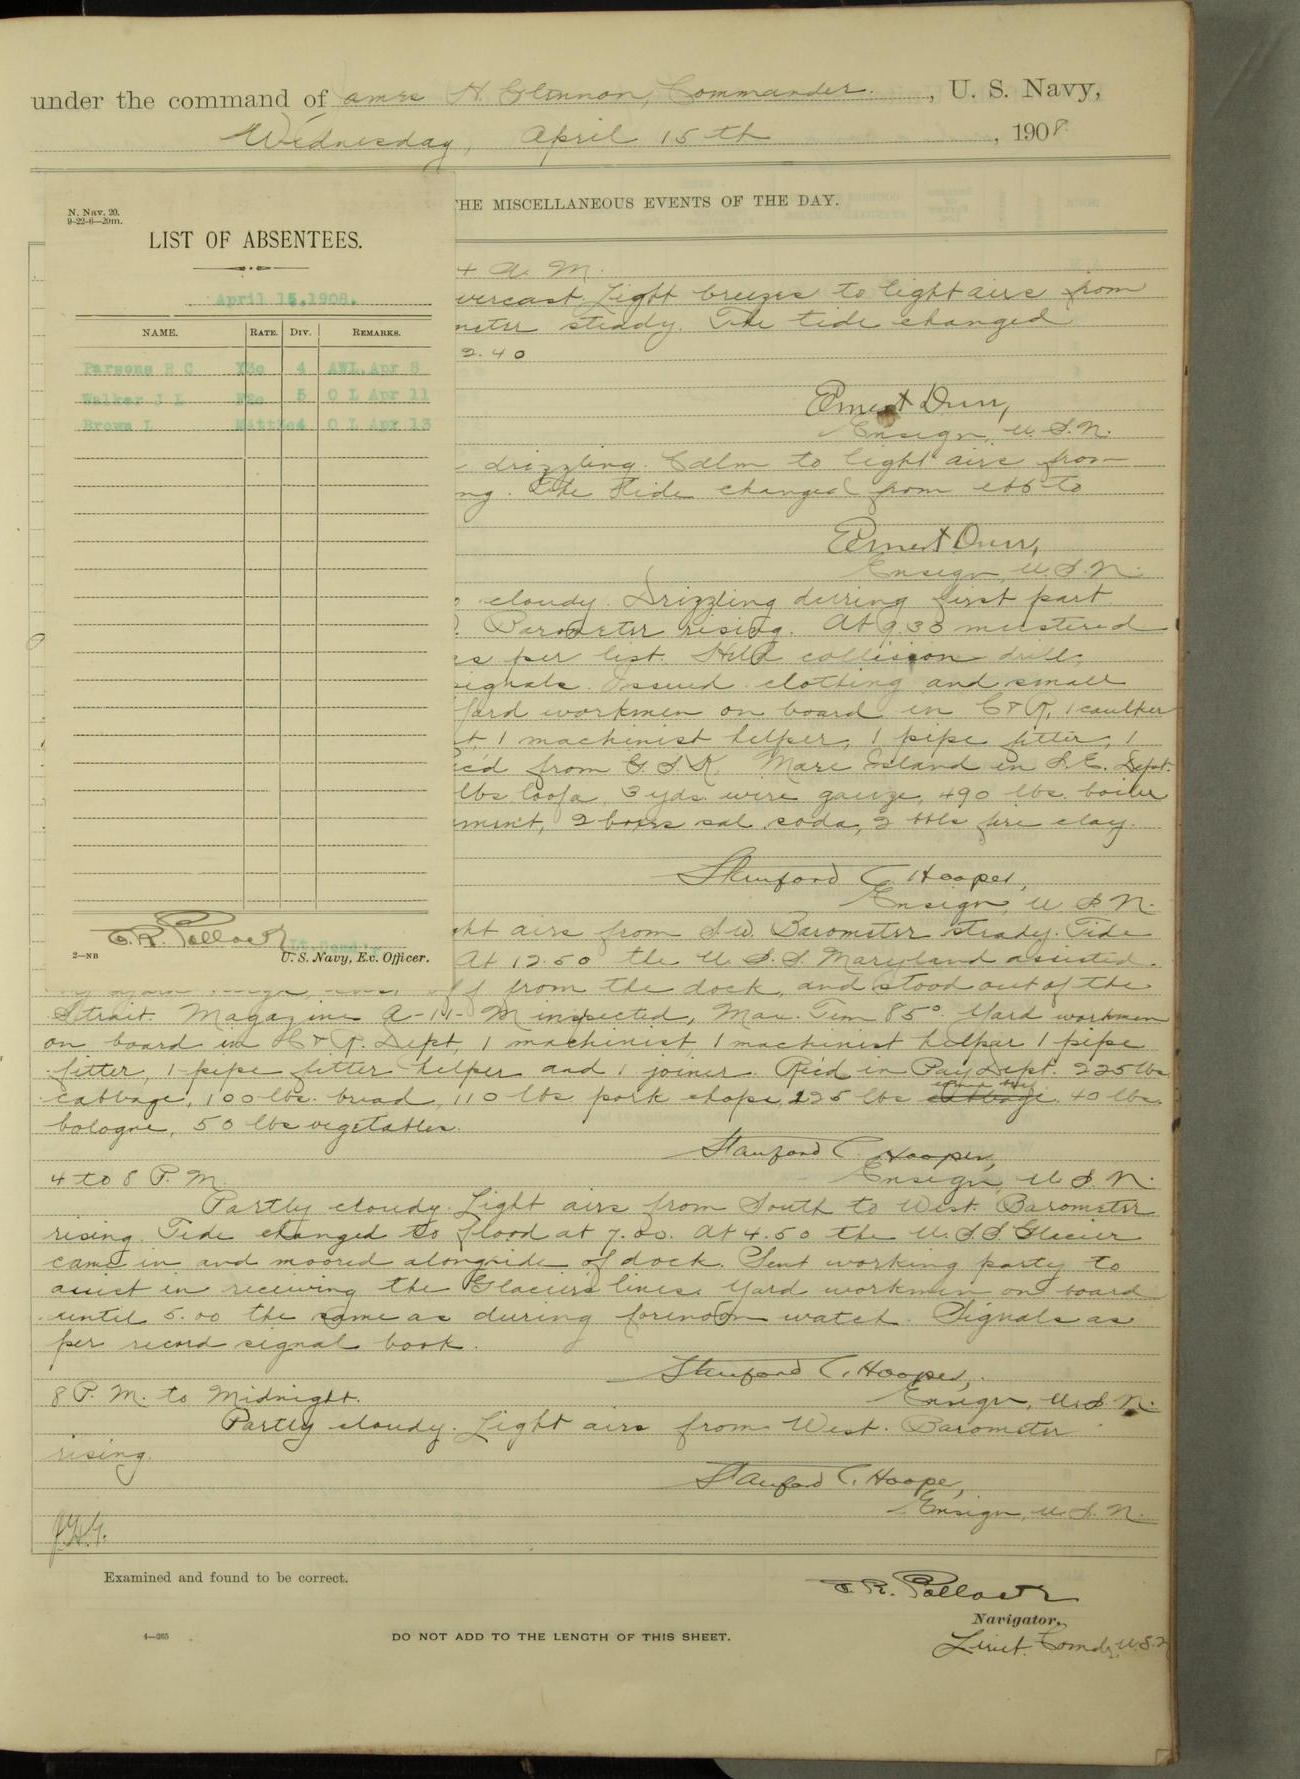 under the command of James H. Glennon, Commander., U. S. Navy,
Wednesday, April 15th, 1908
THE MISCELLANEOUS EVENTS OF THE DAY.
N. Nav. 20.
9-22-6—20m.
LIST OF ABSENTEES.
April 15,1908.
NAME. RATE. DIV. REMARKS.
Parsons R C Y3c 4 AWL.Apr 8
Walker J L F2c 5 O L Apr 11
Brown L Matt3c4 O L Apr 13
U. S. Navy, Ex. Officer.
2—NB
4 A. M.
vercast. Light breezes to light airs from
meter steady. The tide changed
2.40
Ernest Durr,
Ensign, U.S.N.
drizzling. Calm to light airs from
ng. The tide changed from ebb to
Ernest Durr,
Ensign, U.S.N.
cloudy. Drizzling during first part
Barometer rising. At 9.33 mustered
es per list. Held collision drill.
signals. Issued clothing and small
Yard workmen on board in C & R, 1 caulker
t, 1 machinist helper, 1 pipe fitter, 1
ec'd from G.S.K. Mare Island in S.E. Dept.
lbs loofa, 3 yds. wire gauze, 490 lbs. boiler
ment, 2 boxes sal soda, 2 bbls fire clay.
Stanford C. Hooper,
Ensign, U.S.N.
ht airs from S.W. Barometer steady. Tide
At 12.50 the U.S.S. Maryland assisted
off from the dock, and stood out of the
Strait. Magazine A-11-M inspected, Max. Tem 85°. Yard workmen
on board in C & R. Dept, 1 machinist, 1 machinist helper 1 pipe
fitter, 1 pipe fitter helper and 1 joiner. Rec'd in Pay Dept. 225 lbs.
cabbage, 100 lbs. bread, 110 lbs pork chops, 225 lbs cabbage 40 lbs.
bologne, 50 lbs vegetables.
Stanford C. Hooper,
4 to 8 P.M. Ensign, U.S.N.
Partly cloudy. Light airs from South to West. Barometer
rising. Tide changed to flood at 7.20. At 4.50 the U.S.S Glacier
came in and moored alongside of dock. Sent working party to
assist in receiving the Glacier's lines. Yard workmen on board
until 5.00 the same as during forenoon watch. Signals as
per record signal book.
Stanford C. Hooper,
8 P.M. to Midnight. Ensign, U.S.N.
Partly cloudy. Light airs from West. Barometer
rising.
Stanford C. Hooper,
Ensign, U.S.N.
J.H.G.
Examined and found to be correct.
E. R. Pollock
Navigator.
Lieut. Comdr, U.S.N
4—265
DO NOT ADD TO THE LENGTH OF THIS SHEET.